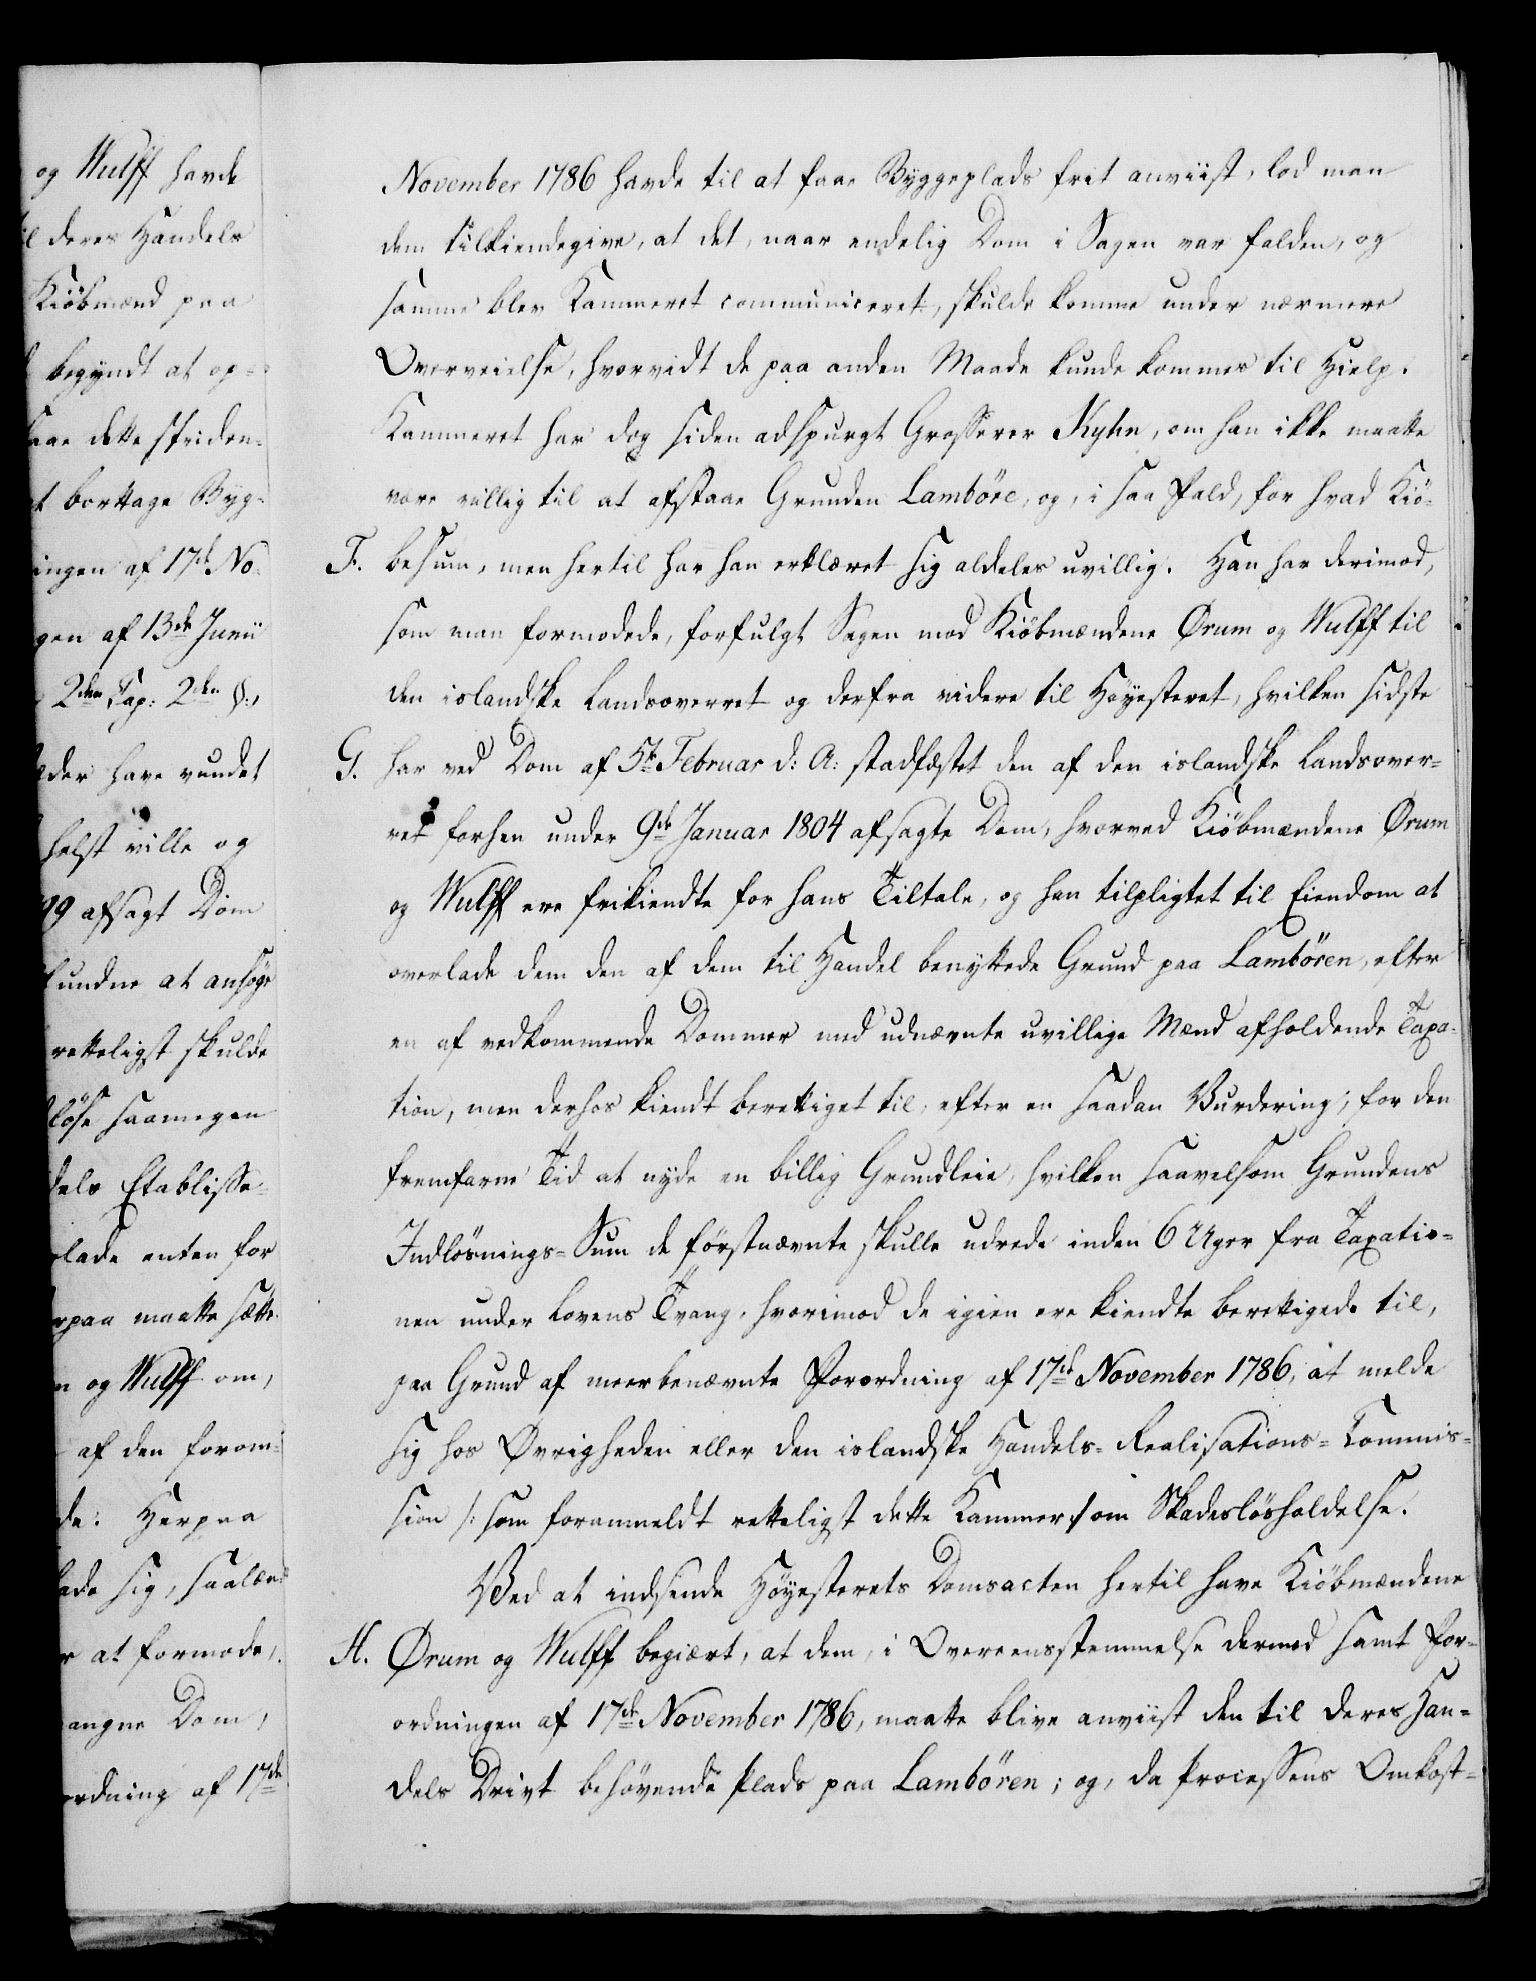 og Wulff havde
deres Handels
Kiöbmænd paa
begyndt at op-
dette striden-
borttage Byg-
ingen af 17de No-
gen af 13de Junii
2den Cap: 2den §.,
have vundet
helst ville og
99 afsagt Dom
at ansöge
retteligst skulde
saamegen
Etablisse-
enten for
maatte sætte
og Wulff om,
af den forom-
Herpaa
sig, saalæn-
at formode,
Dom,
af 17de
November 1786 havde til at faae Byggeplads frit anviist, lod man
dem tilkiendegive, at det, naar endelig Dom i Sagen var falden, og
samme blev Kammeret communiceret, skulde komme under nærmere
Overveielse, hvorvidt de paa anden Maade kunde kommes til Hielp.
Kammeret har dog siden adspurgt Grosserer Kyhn, om han ikke maatte
være villig til at afstaae Grunden Lamböre, og, i saa Fald, for hvad Kiö-
F. besum, men hertil har han erklæret sig aldeles uvillig. Han har derimod,
som man formodede, forfulgt Sagen mod Kiöbmændene Ørum og Wulff til
den islandske Landsoverret og derfra videre til Høyesteret, hvilken sidste
G. har ved Dom af 5te Februar d: A: stadfæstet den af den islandske Landsover-
ret forhen under 9de Januar 1804 afsagte Dom, hvorved Kiöbmændene Ørum
og Wulff ere frikiendte for hans Tiltale, og han tilpligtet til Eiendom at
overlade dem den af dem til Handel benyttede Grund paa Lambören, efter
en af vedkommende Dommer med udnævnte uvillige Mænd afholdende Taxa-
tion, men derhos kiendt berettiget til, efter en saadan Vurdering, for den
fremfarne Tid at nyde en billig Grundleie, hvilken saavelsom Grundens
Indlösnings-Sum de förstnævnte skulle udrede inden 6 Uger fra Taxatio-
nen under Lovens Tvang, hvorimod de igien ere kiendte berettigede til,
paa Grund af meerbenævnte Forordning af 17de November 1786, at melde
sig hos Øvrigheden eller den islandske Handels-Realisations-Commis-
sion /: som foranmeldt retteligst dette Kammer :/ om Skadeslösholdelse.
Ved at indsende Höyesterets Domsacten hertil have Kiöbmændene
H. Ørum og Wulff begiært, at dem, i Overeensstemmelse dermed samt For-
ordningen af 17de November 1786, maatte blive anviist den til deres Han-
dels Drivt behövende Plads paa Lambören; og, da Processens Omkost-